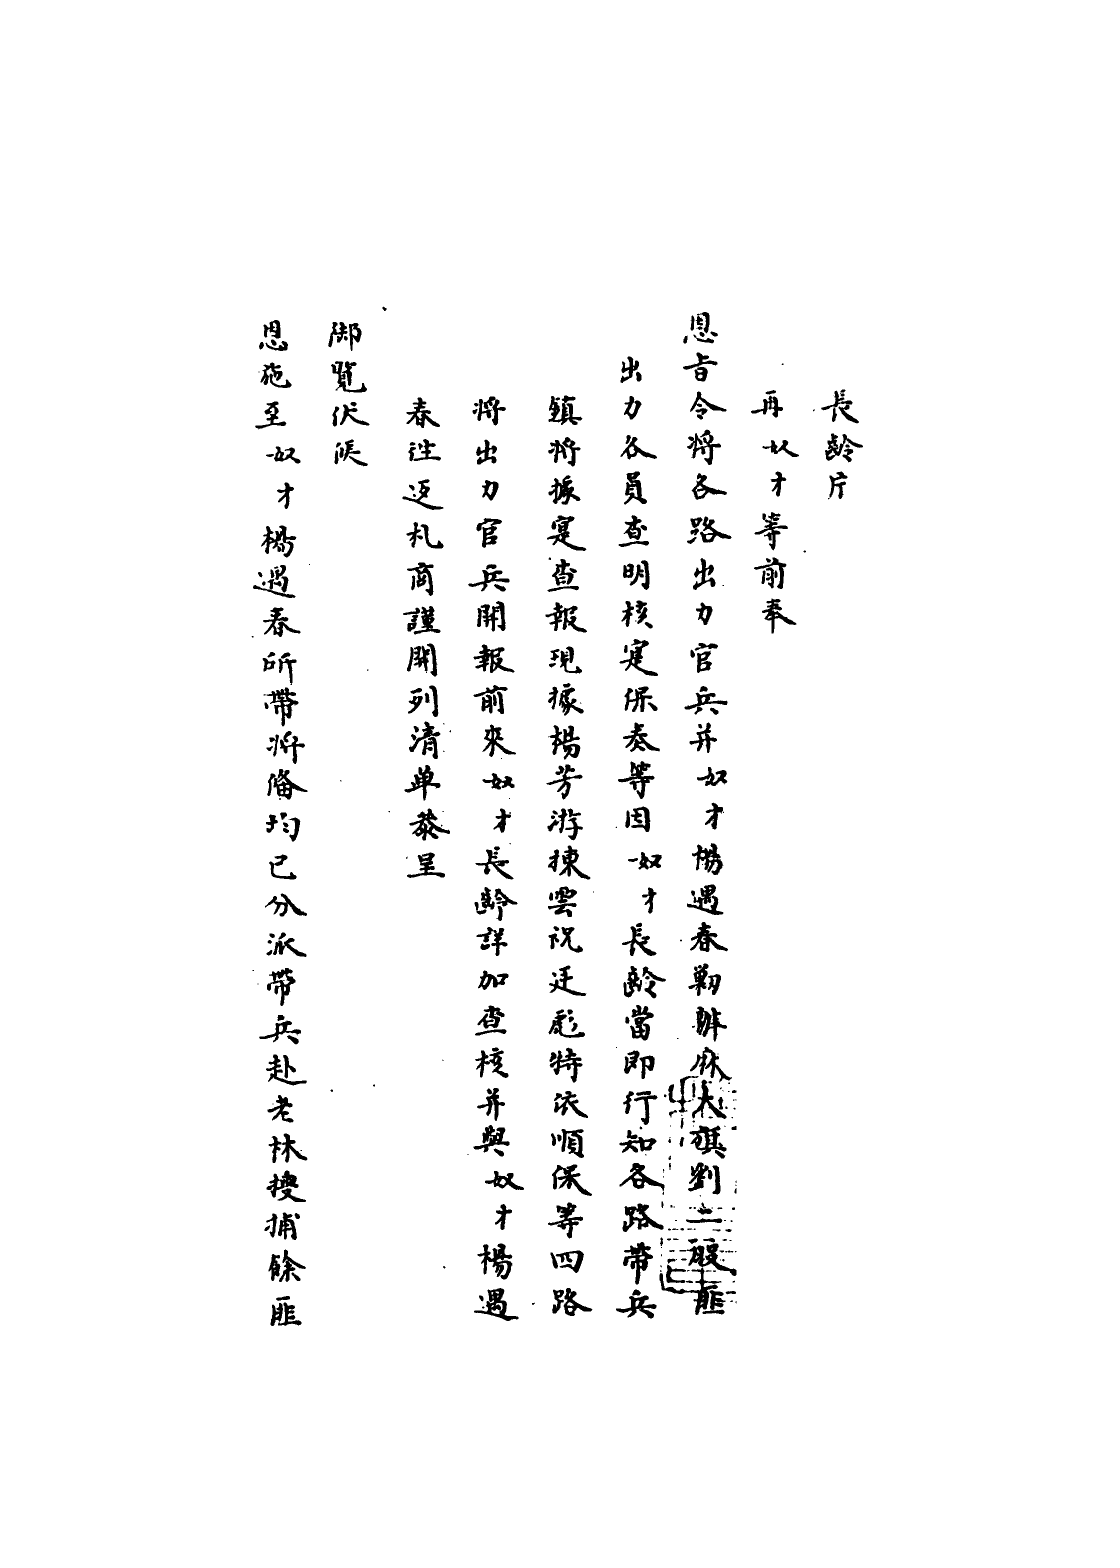 長齡片
再奴才等前奉
恩旨令將各路出力官兵并奴才楊遇春勦辦麻大旗劉二股匪
出力各員查明核寔保奏等因奴才長齡當即行知各路帶兵
鎮將據寔查報現據楊芳游棟雲祝廷彪特依順保等四路
將出力官兵開報前來奴才長齡詳加查核并與奴才楊遇
春往返札商謹開列清单恭呈
御覽伏候
恩施至奴才楊遇春所帶將俻均已分派帶兵赴老林搜捕餘匪